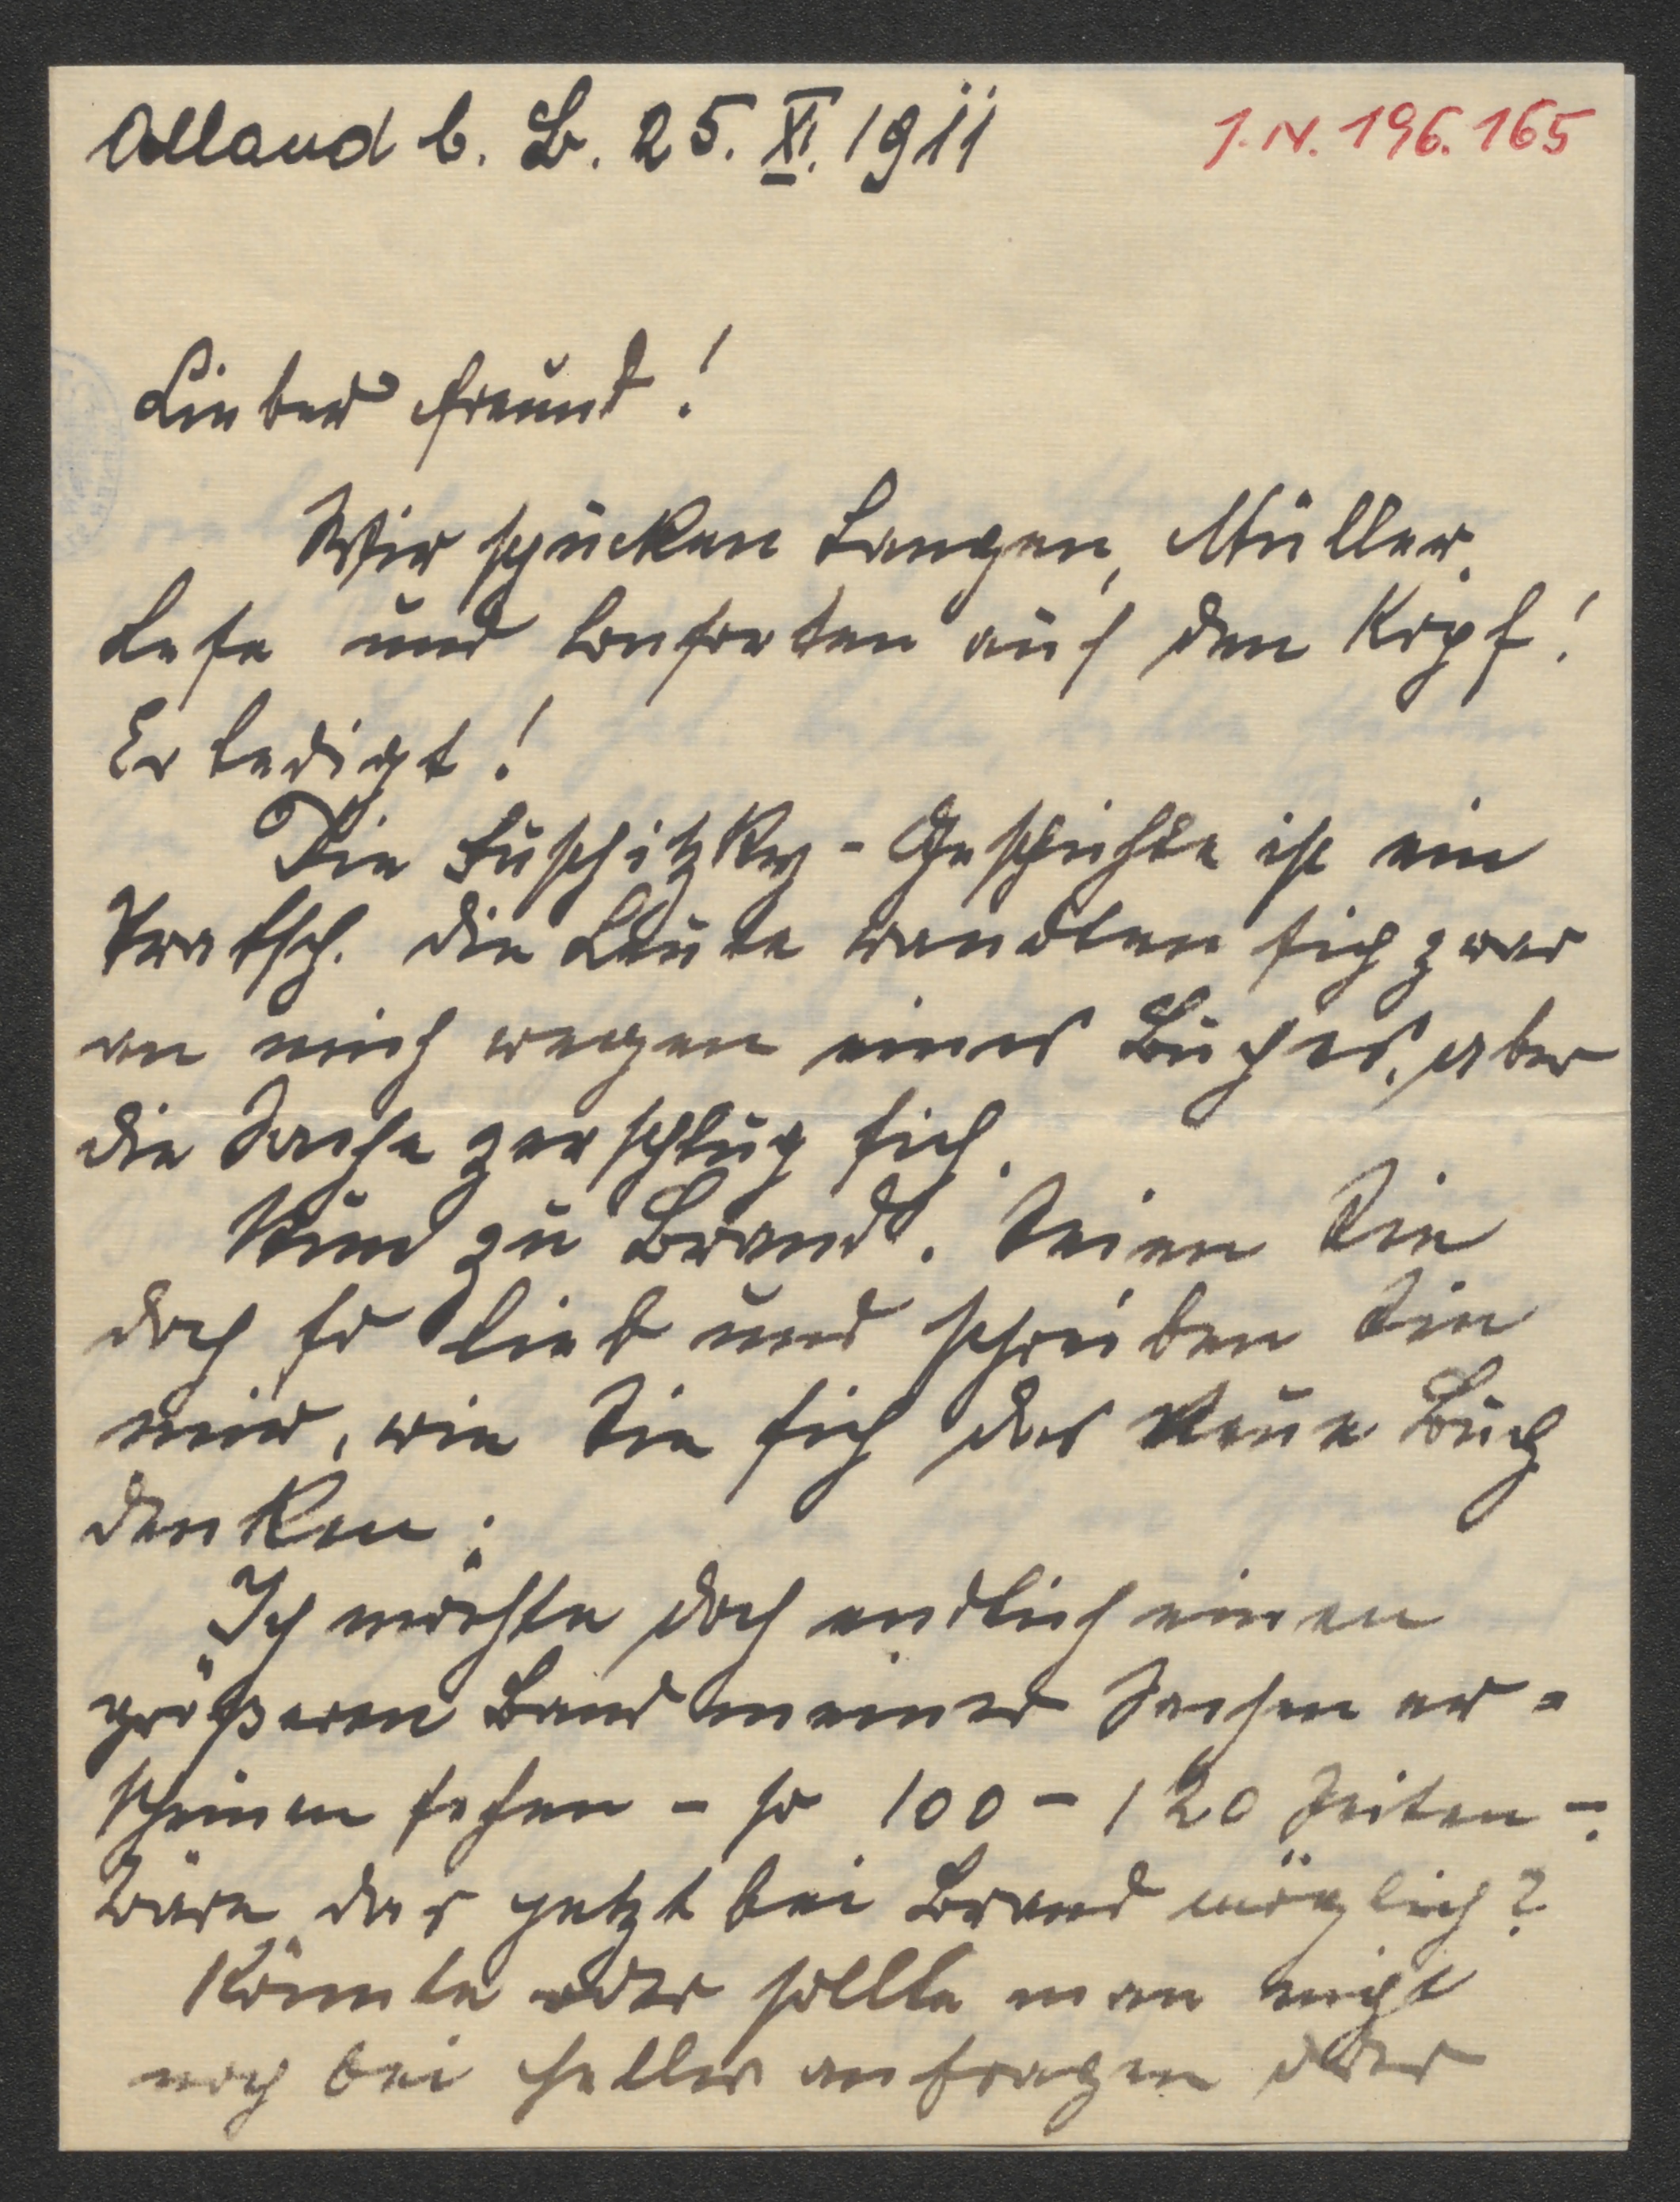 Alland b. B. 25. XI. 1911
J.N. 196.165
Lieber Freund!
Wir spucken Langen, Müller,
und Consorten auf den Kopf!
Erledigt!
Die Suschitzky-Geschichte ist ein
Tratsch. Die Leute wandten sich zwar
an mich wegen eines Buches, aber
die Sache zerschlug sich.
Nun zu Brand. Seien Sie
doch so lieb und schreiben Sie
mir, wie Sie sich das neue Buch
denken:
Ich möchte doch endlich einen
größeren Band meiner Sachen er-
scheinen sehen – so 100–120 Seiten –.
Wäre das jetzt bei Brand möglich?
Könnte oder sollte man nicht
noch bei Heller anfragen oder